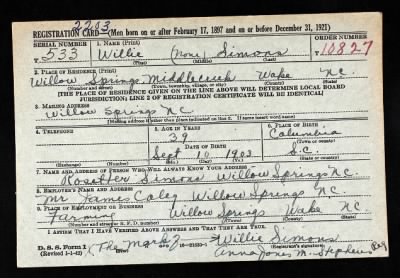 2203
REGISTRATION CARD—(Men born on or after February 17, 1897 and on or before December 31, 1921)
SERIAL NUMBER 1. NAME (Print) ORDER NUMBER
T 533 Willie (none) Simons T 10827
(First) (Middle) (Last)
2. PLACE OF RESIDENCE (Print)
Willow Springs Middlecreek Wake N.C.
(Number and street) (Town, township, village, or city) (County) (State)
[THE PLACE OF RESIDENCE GIVEN ON THE LINE ABOVE WILL DETERMINE LOCAL BOARD
JURISDICTION; LINE 2 OF REGISTRATION CERTIFICATE WILL BE IDENTICAL]
3. MAILING ADDRESS
Willow Springs N.C.
[Mailing address if other than place indicated on line 2. If same insert word same]
4. TELEPHONE 5. AGE IN YEARS 6. PLACE OF BIRTH
39 Columbia
DATE OF BIRTH (Town or county)
Sept 10 1903 S.C.
(Exchange) (Number) (Mo.) (Day) (Yr.) (State or country)
7. NAME AND ADDRESS OF PERSON WHO WILL ALWAYS KNOW YOUR ADDRESS
Simons Willow Springs N.C.
8. EMPLOYER'S NAME AND ADDRESS
Mr. James Coley Willow Springs N.C.
9. PLACE OF EMPLOYMENT OR BUSINESS
Farming Willow Springs Wake N.C.
(Number and street or R. F. D. number) (Town) (County) (State)
I AFFIRM THAT I HAVE VERIFIED ABOVE ANSWERS AND THAT THEY ARE TRUE.
D. S. S. Form 1 (The Mark) Willie Simons
(Revised 1-1-42) (over) 16—21630-1 (Registrant's signature)
Anna Jones M. Stephens